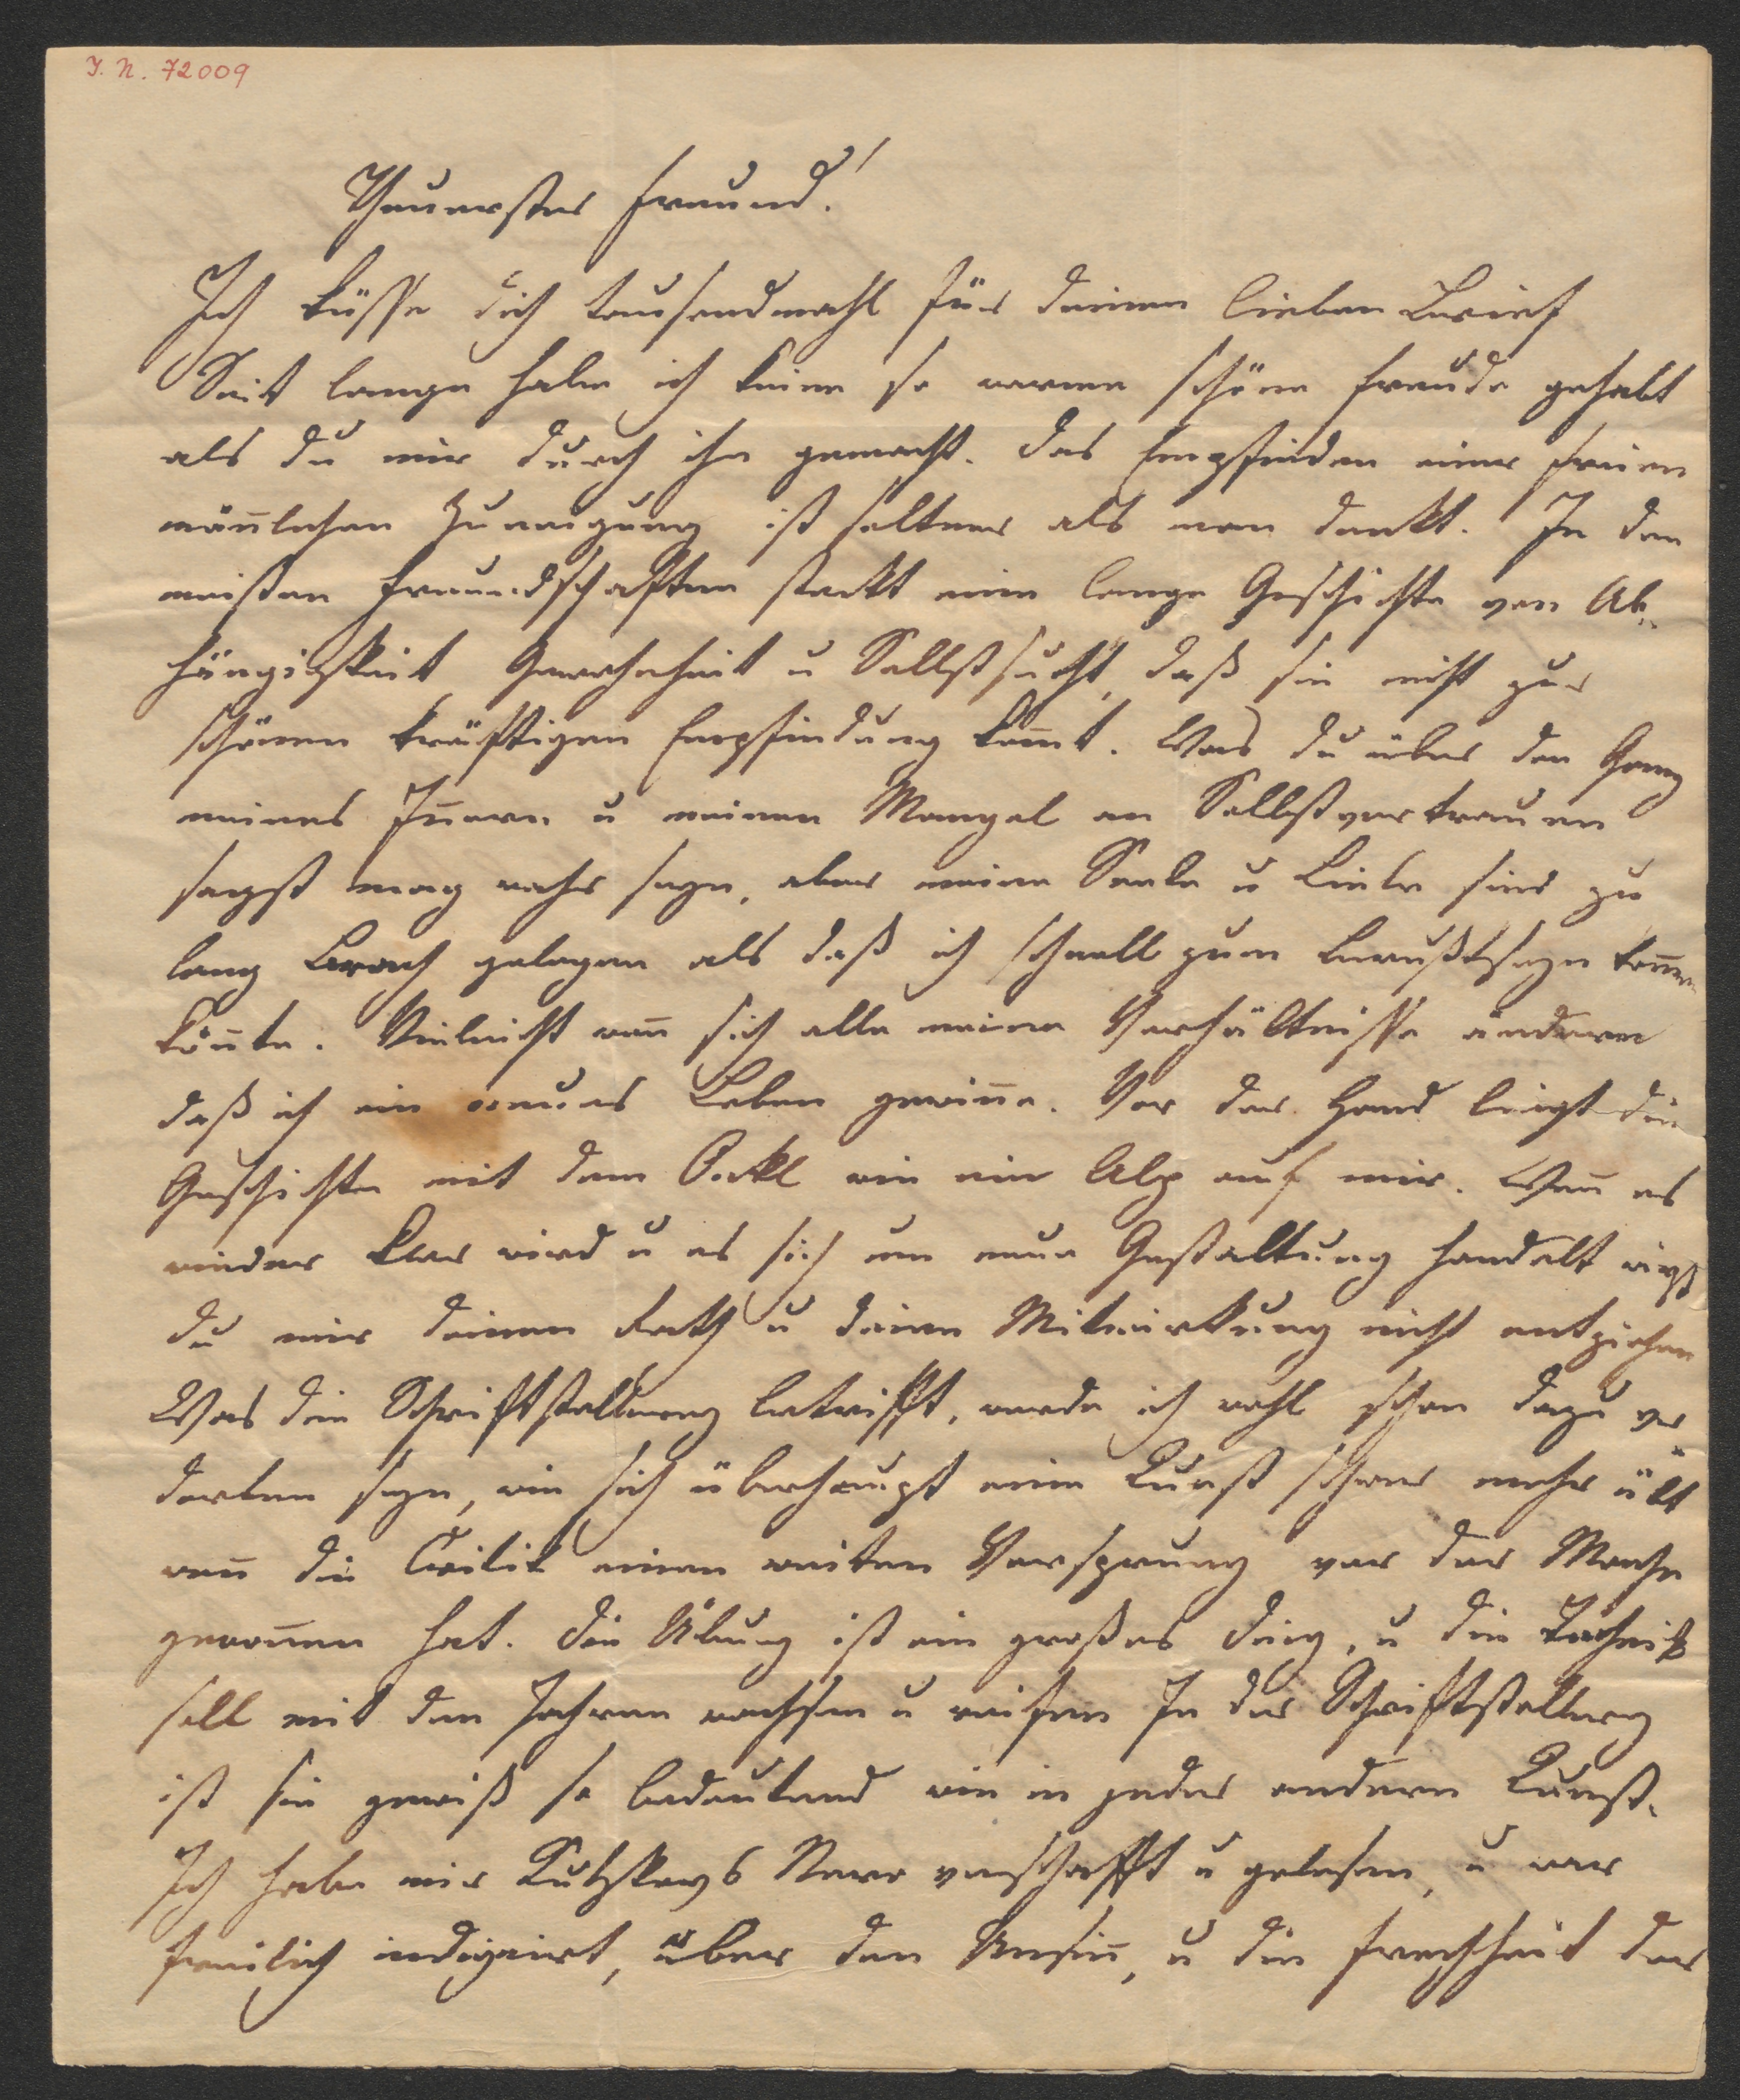 I. N. 72009
Theuerster Freund!
Ich küsse dich tausendmahl für deinen lieben Brief
Seit lange habe ich keine so warme schöne Freude gehabt
als du mir durch ihn gemacht. Das Empfinden einer freien
mānlichen Zuneigung ist seltner als man denkt. In den
meisten Freundschaften steckt eine lange Geschichte von Ab-
hängigkeit, Gewohnheit u Selbstsucht, daß sie nicht zur
schönen kräftigen Empfindung kom̄t. Was du über den Gang
meines In̄ern u meinen Mangel an Selbstvertrauen
sagst mag wahr seyn, aber meine Seele u Liebe sind zu
lang Brach gelegen als daß ich schnell zum Bewußtseyn kom̄en
kön̄te. Vieleicht wen̄ sich alle meine Verhältnisse ändern
daß ich ein neues Leben gewin̄e. Vor der Hand liegt die
Geschichte mit dem wie ein Alp auf mir. Wen̄ es
wieder klar wird u es sich um neue Gestaltung handelt wirst
du mir deinen Rath u deine Mitwirkung nicht entziehen
Was die Schriftstellerey betrifft, werde ich wohl schon dazu ver
dorben seyn, wie sich überhaupt eine Kunst schwer mehr übt
wen̄ die Critik einen weiten Vorsprung vor der Mache
gewon̄en hat. Die Übung ist ein großes Ding, u die Technik
soll mit den Jahren wachsen u reifen In der Schriftstellerey
ist sie gewiß so bedeutend wie in jeder andern Kunst.
Ich habe mir Gutzkows Nero verschafft u gelesen, u war
freilich indignirt, über den Unsin̄, u die Frechheit der